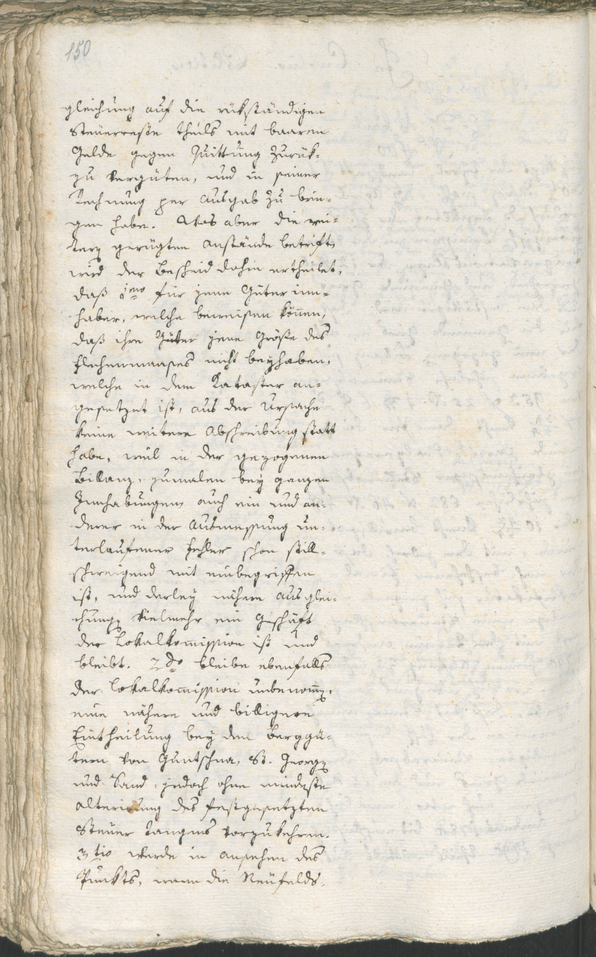 150
gleichung auf die rükständigen
Steuerreste theils mit baarem
Gelde gegen Quittung zurük-
zu vergüten, und in seiner
Rechnung per Ausgab zu brin-
gen habe. Was aber die wei-
ters gerügten Anstände betrift,
wird der Bescheid dahin ertheilet,
daß 1mo für jene Güterinn-
haber, welche beweisen können,
daß ihre Güter jene Größe des
Flechenmaases nicht beyhaben,
welche in dem Kataster an-
gesetzet ist, aus der Ursache
keine weitere Abschreibung statt
habe, weil in der gezogenen
Billanz, zumalen bey ganzen
Innhabungen auch ein und an-
derer in der Ausmessung un-
terlaufener Fehler schon still-
schweigend mit einbegriffen
ist, und derley nähere Ausglei-
chung vielmehr ein Geschäft
der Lokalkomission ist und
bleibt. 2do bleibe ebenfalls
der Lokalkomission unbenomm,
eine nähere und billigere
Eintheilung bey den Berggü-
tern von Guntschna, St. Georg
und Sand, jedoch ohne mindeste
Alterirung des festgesetzten
Steuer vorzukehren.
3tio werde in ansehen des
Punkts, wenn die Neufelds-